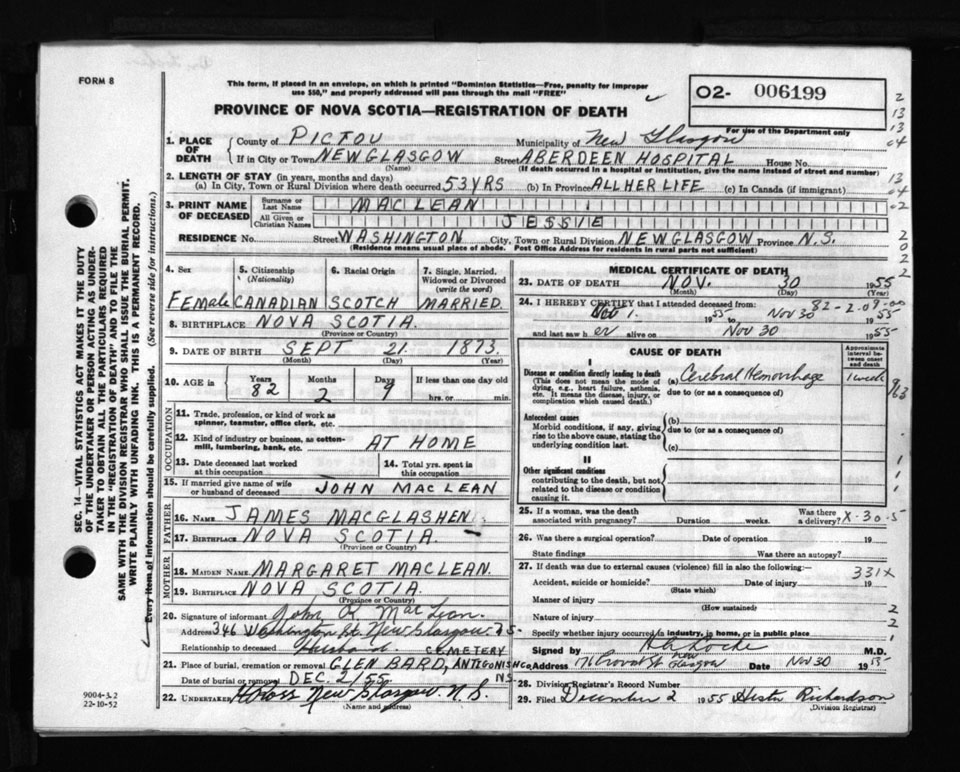 FORM 8
This form, if placed in an envelope, on which is printed "Dominion Statistics—Free, penalty for improper
use $50," and properly addressed will pass through the mail "FREE"
PROVINCE OF NOVA SCOTIA—REGISTRATION OF DEATH
02- 006199
For use of the Department only
1. PLACE OF DEATH
County of PICTOU Municipality of New Glasgow
If in City or Town NEW GLASGOW Street ABERDEEN HOSPITAL House No.
(Name) (If death occurred in a hospital or institution, give the name instead of street and number)
2. LENGTH OF STAY (in years, months and days)
(a) In City, Town or Rural Division where death occurred 53 YRS (b) In Province ALL HER LIFE (c) In Canada (if immigrant)
3. PRINT NAME OF DECEASED
Surname or Last Name MACLEAN
All Given or Christian Names JESSIE
RESIDENCE No. Street WASHINGTON City, Town or Rural Division NEW GLASGOW Province N.S.
(Residence means usual place of abode. Post Office Address for residents in rural parts not sufficient)
4. Sex Female
5. Citizenship (Nationality) CANADIAN
6. Racial Origin SCOTCH
7. Single, Married, Widowed or Divorced (write the word) MARRIED.
8. BIRTHPLACE NOVA SCOTIA.
(Province or Country)
9. DATE OF BIRTH SEPT 21 1873
(Month) (Day) (Year)
10. AGE in Years 82 Months 2 Days 9 If less than one day old
hrs. or min.
OCCUPATION
11. Trade, profession, or kind of work as
spinner, teamster, office clerk, etc.
12. Kind of industry or business, as cotton-
mill, lumbering, bank, etc. AT HOME
13. Date deceased last worked
at this occupation
14. Total yrs. spent in
this occupation
15. If married give name of wife
or husband of deceased JOHN MACLEAN
FATHER
16. NAME JAMES MACGLASHEN
17. BIRTHPLACE NOVA SCOTIA.
(Province or Country)
MOTHER
18. MAIDEN NAME MARGARET MACLEAN.
19. BIRTHPLACE NOVA SCOTIA.
(Province or Country)
20. Signature of informant John R. MacLean.
Address 346 Washington St. New Glasgow N.S.
Relationship to deceased Husband.
21. Place of burial, cremation or removal GLEN BARD, ANTIGONISH CO. CEMETERY
Date of burial or removal DEC. 2/55 N.S.
22. UNDERTAKER New Glasgow. N.S.
(Name and address)
MEDICAL CERTIFICATE OF DEATH
23. DATE OF DEATH NOV. 30 1955
(Month) (Day) (Year)
24. I HEREBY CERTIFY that I attended deceased from: 82-2.09-00
1. 1955 to Nov 30 1955
and last saw her alive on Nov 30 1955
CAUSE OF DEATH
Approximate interval between onset and death
I
Disease or condition directly leading to death
(This does not mean the mode of
dying, e.g., heart failure, asthenia,
etc. It means the disease, injury, or
complication which caused death.)
(a) Cerebral Hemorrhage 1 week
due to (or as a consequence of)
Antecedent causes
Morbid conditions, if any, giving
rise to the above cause, stating the
underlying condition last.
(b)
due to (or as a consequence of)
(c)
II
Other significant conditions
contributing to the death, but not
related to the disease or condition
causing it.
25. If a woman, was the death
associated with pregnancy? Duration weeks. Was there
a delivery? X-30-5
26. Was there a surgical operation? Date of operation 19
State findings Was there an autopsy?
27. If death was due to external causes (violence) fill in also the following:— 331X
Accident, suicide or homicide? Date of injury 19
(State which)
Manner of injury
(How sustained)
Nature of injury
Specify whether injury occurred in industry, in home, or in public place
Signed by M.D.
Address 176 Provost St New Glasgow Date Nov 30 1955
28. Division Registrar's Record Number
29. Filed December 2 1955 Richardson
(Division Registrar)
SEC. 14—VITAL STATISTICS ACT MAKES IT THE DUTY
OF THE UNDERTAKER OR PERSON ACTING AS UNDER-
TAKER TO OBTAIN ALL THE PARTICULARS REQUIRED
IN THE "REGISTRATION OF DEATH" AND TO FILE THE
SAME WITH THE DIVISION REGISTRAR WHO SHALL ISSUE THE BURIAL PERMIT.
WRITE PLAINLY WITH UNFADING INK. THIS IS A PERMANENT RECORD.
Every item of information should be carefully supplied. (See reverse side for instructions).
9004-3.2
22-10-52
2
13
13
04
13
04
02
2
0
2
2
1
1
1
2
2
1